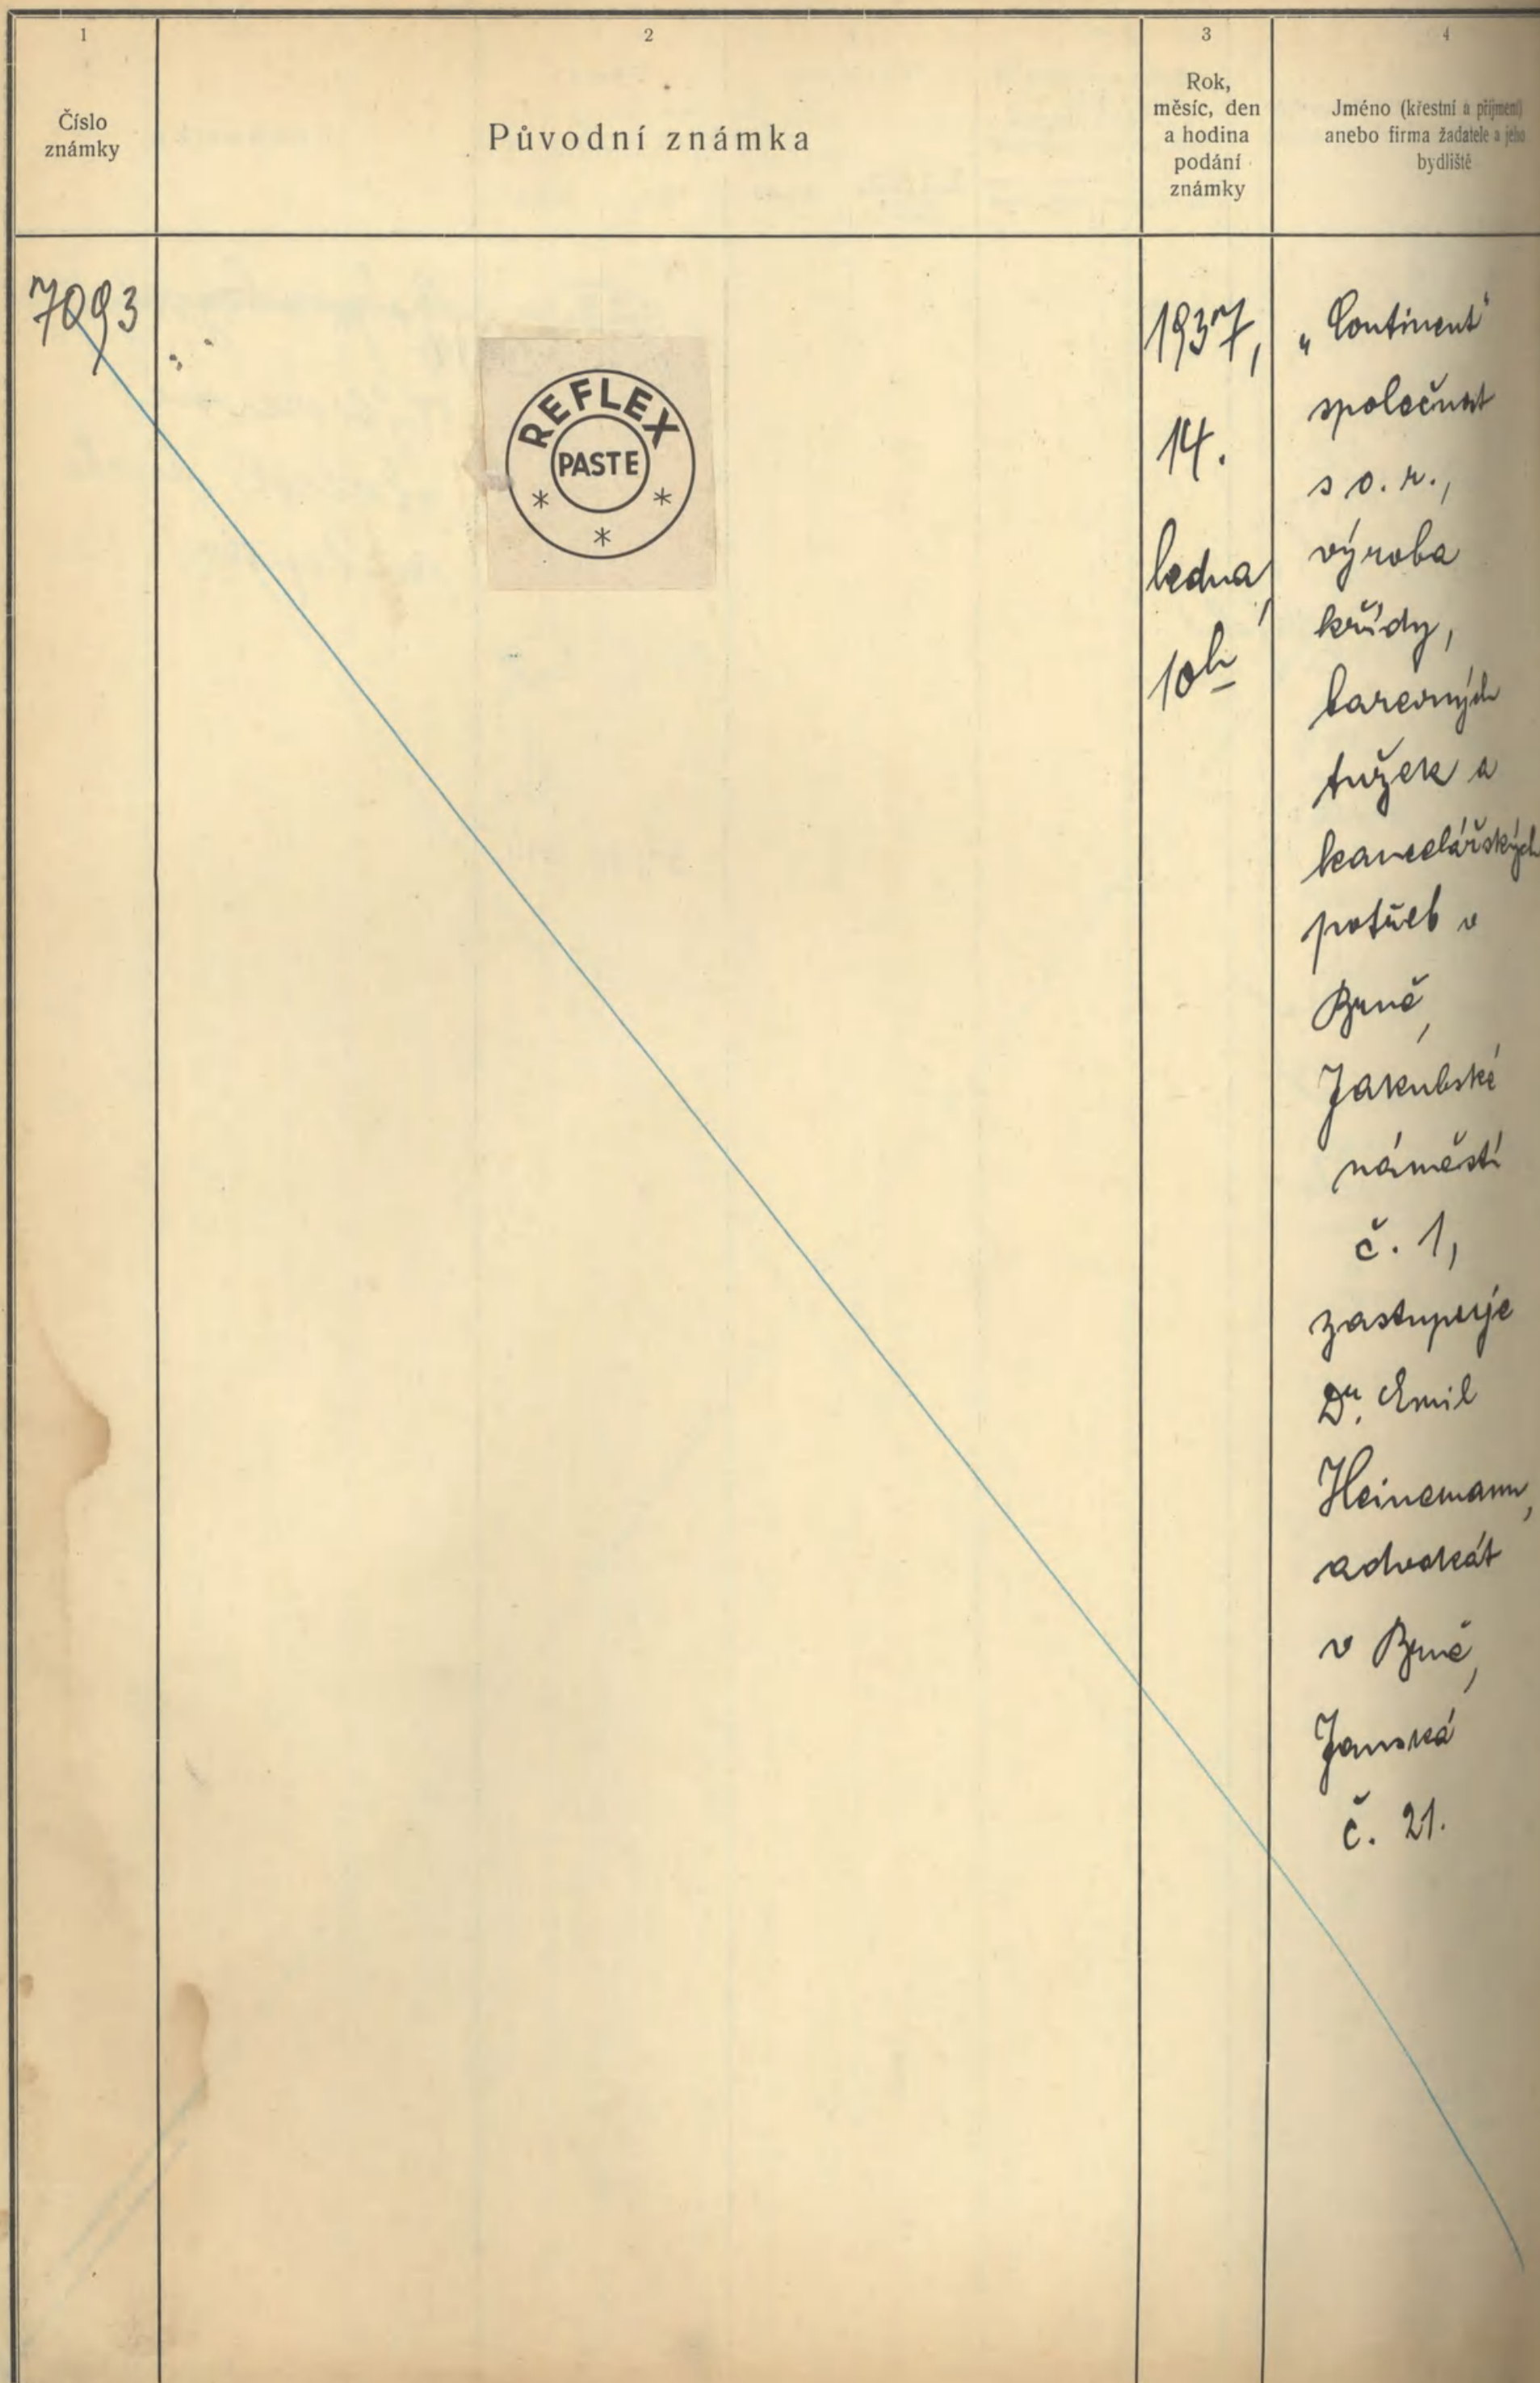 1
Číslo
známky
2
Původní známka
3
Rok,
měsíc, den
a hodina
podání
známky
4
Jméno (křestní a příjmení)
anebo firma žadatele a jeho
bydliště
7093
REFLEX
PASTE
* * *
1937,
14.
ledna,
10h
„Continent"
společnost
s o. r.,
výroba
křídy,
barevných
tužek a
kancelářských
potřeb v
Brně,
Jakubské
náměstí
č. 1,
zastupuje
Dr. Emil
Heinemann,
advokát
v Brně,
Janská
č. 21.